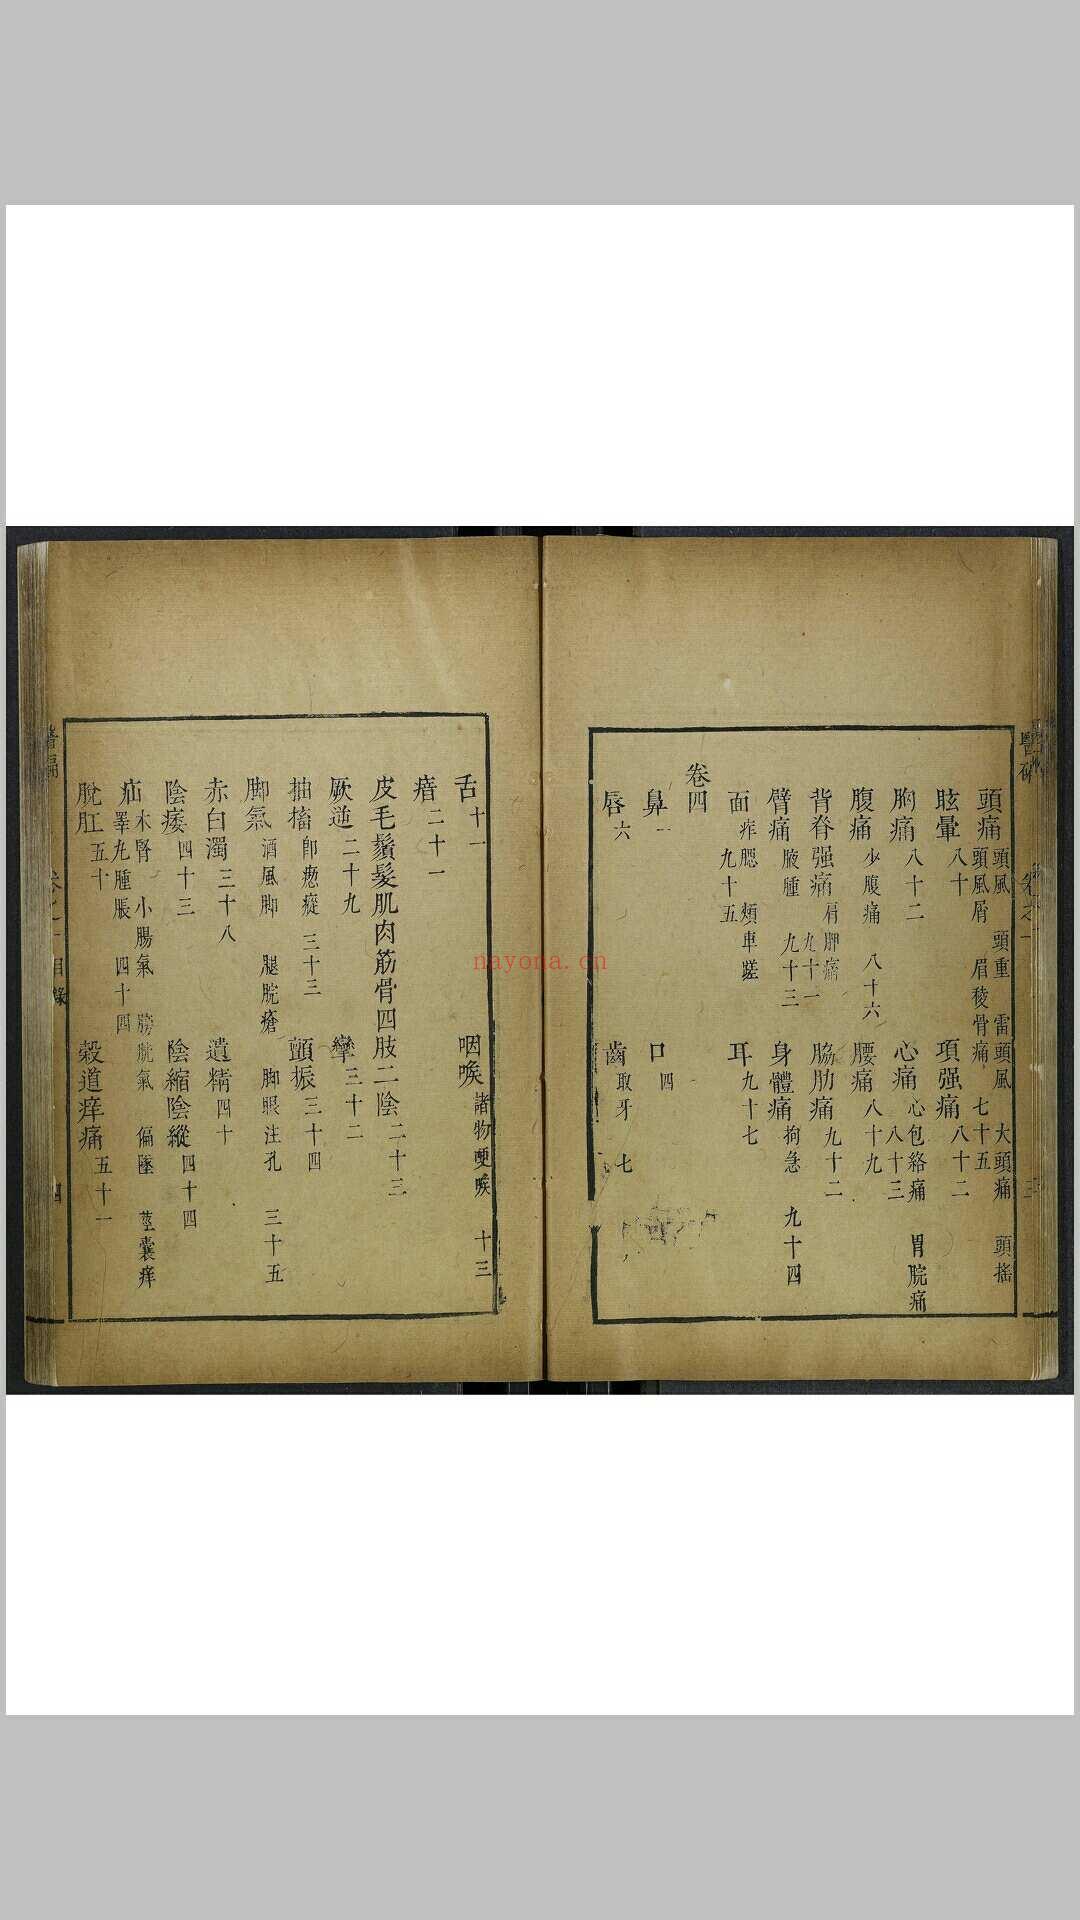 頭痛 頭風 頭重 雷頭風 大頭痛 頭搖 頭風屑 眉稜骨痛 七十五
眩暈 八十 項强痛 八十二
胸痛 八十二 心痛 心包絡痛 胃脘痛 八十三
腹痛 少腹痛 八十六 腰痛 八十九
背脊强痛 肩胛痛 九十一 脇肋痛 九十二
臂痛 腋腫 九十三 身體痛 拘急 九十四
面 痄腮 頰車蹉 九十五 耳 九十七
卷四
鼻 一 口 四
唇 六 齒 取牙 七
舌 十一 咽喉 諸物哽喉 十三
瘖 二十一
皮毛鬚髮肌肉筋骨四肢二陰 二十三
厥逆 二十九 攣 三十二
抽搐 卽瘛瘲 三十三 顫振 三十四
脚氣 酒風脚 腿脘瘡 脚眼注孔 三十五
赤白濁 三十八 遺精 四十
陰痿 四十三 陰縮陰縱 四十四
疝 木腎 小腸氣 膀胱氣 偏墜 莖囊痒 睪丸腫脹 四十四
脫肛 五十 穀道痒痛 五十一
nayona.cn